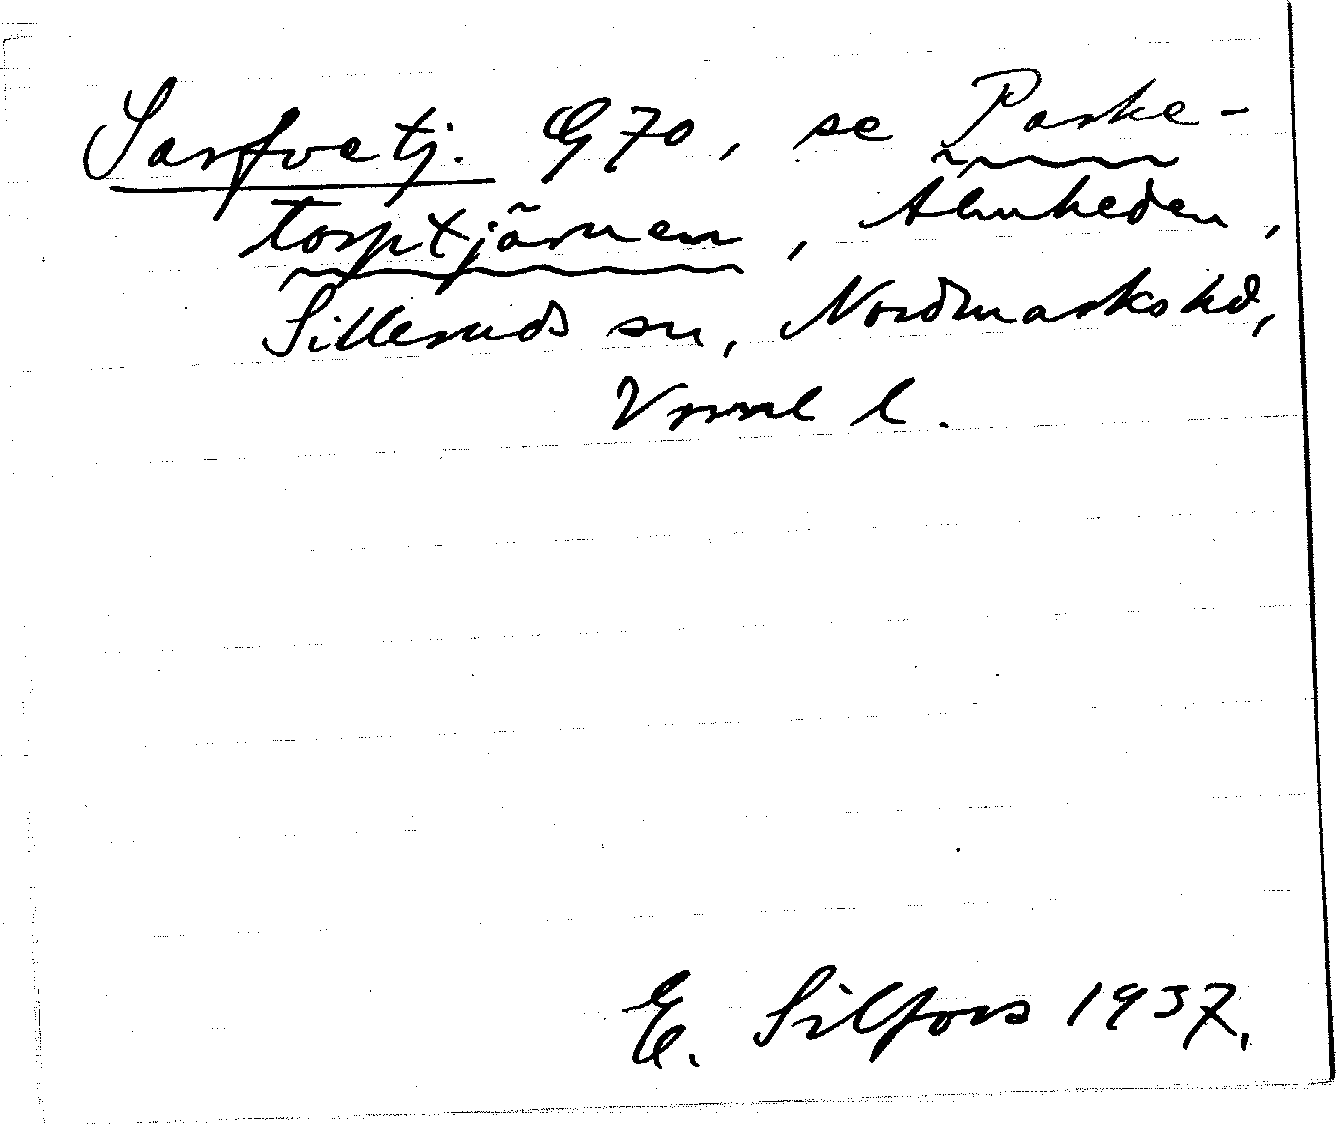 Sarfvetj. G 70, se Parke-
torptjärnen, Almheden,
Silleruds sn, Nordmarks hd,
Vrml l.
E. Silfors 1937.